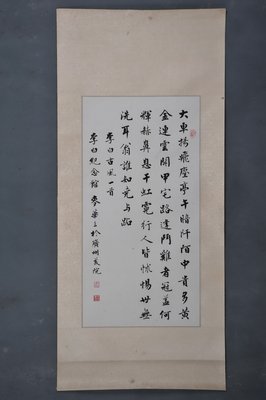 大車揚飛塵亭午暗阡陌中貴多黃
金連雲開甲宅路逢鬥雞者冠蓋何
輝赫鼻息干虹霓行人皆怵惕世無
洗耳翁誰知堯與跖
李白古風一首
李白紀念館 麥華三於廣州美院